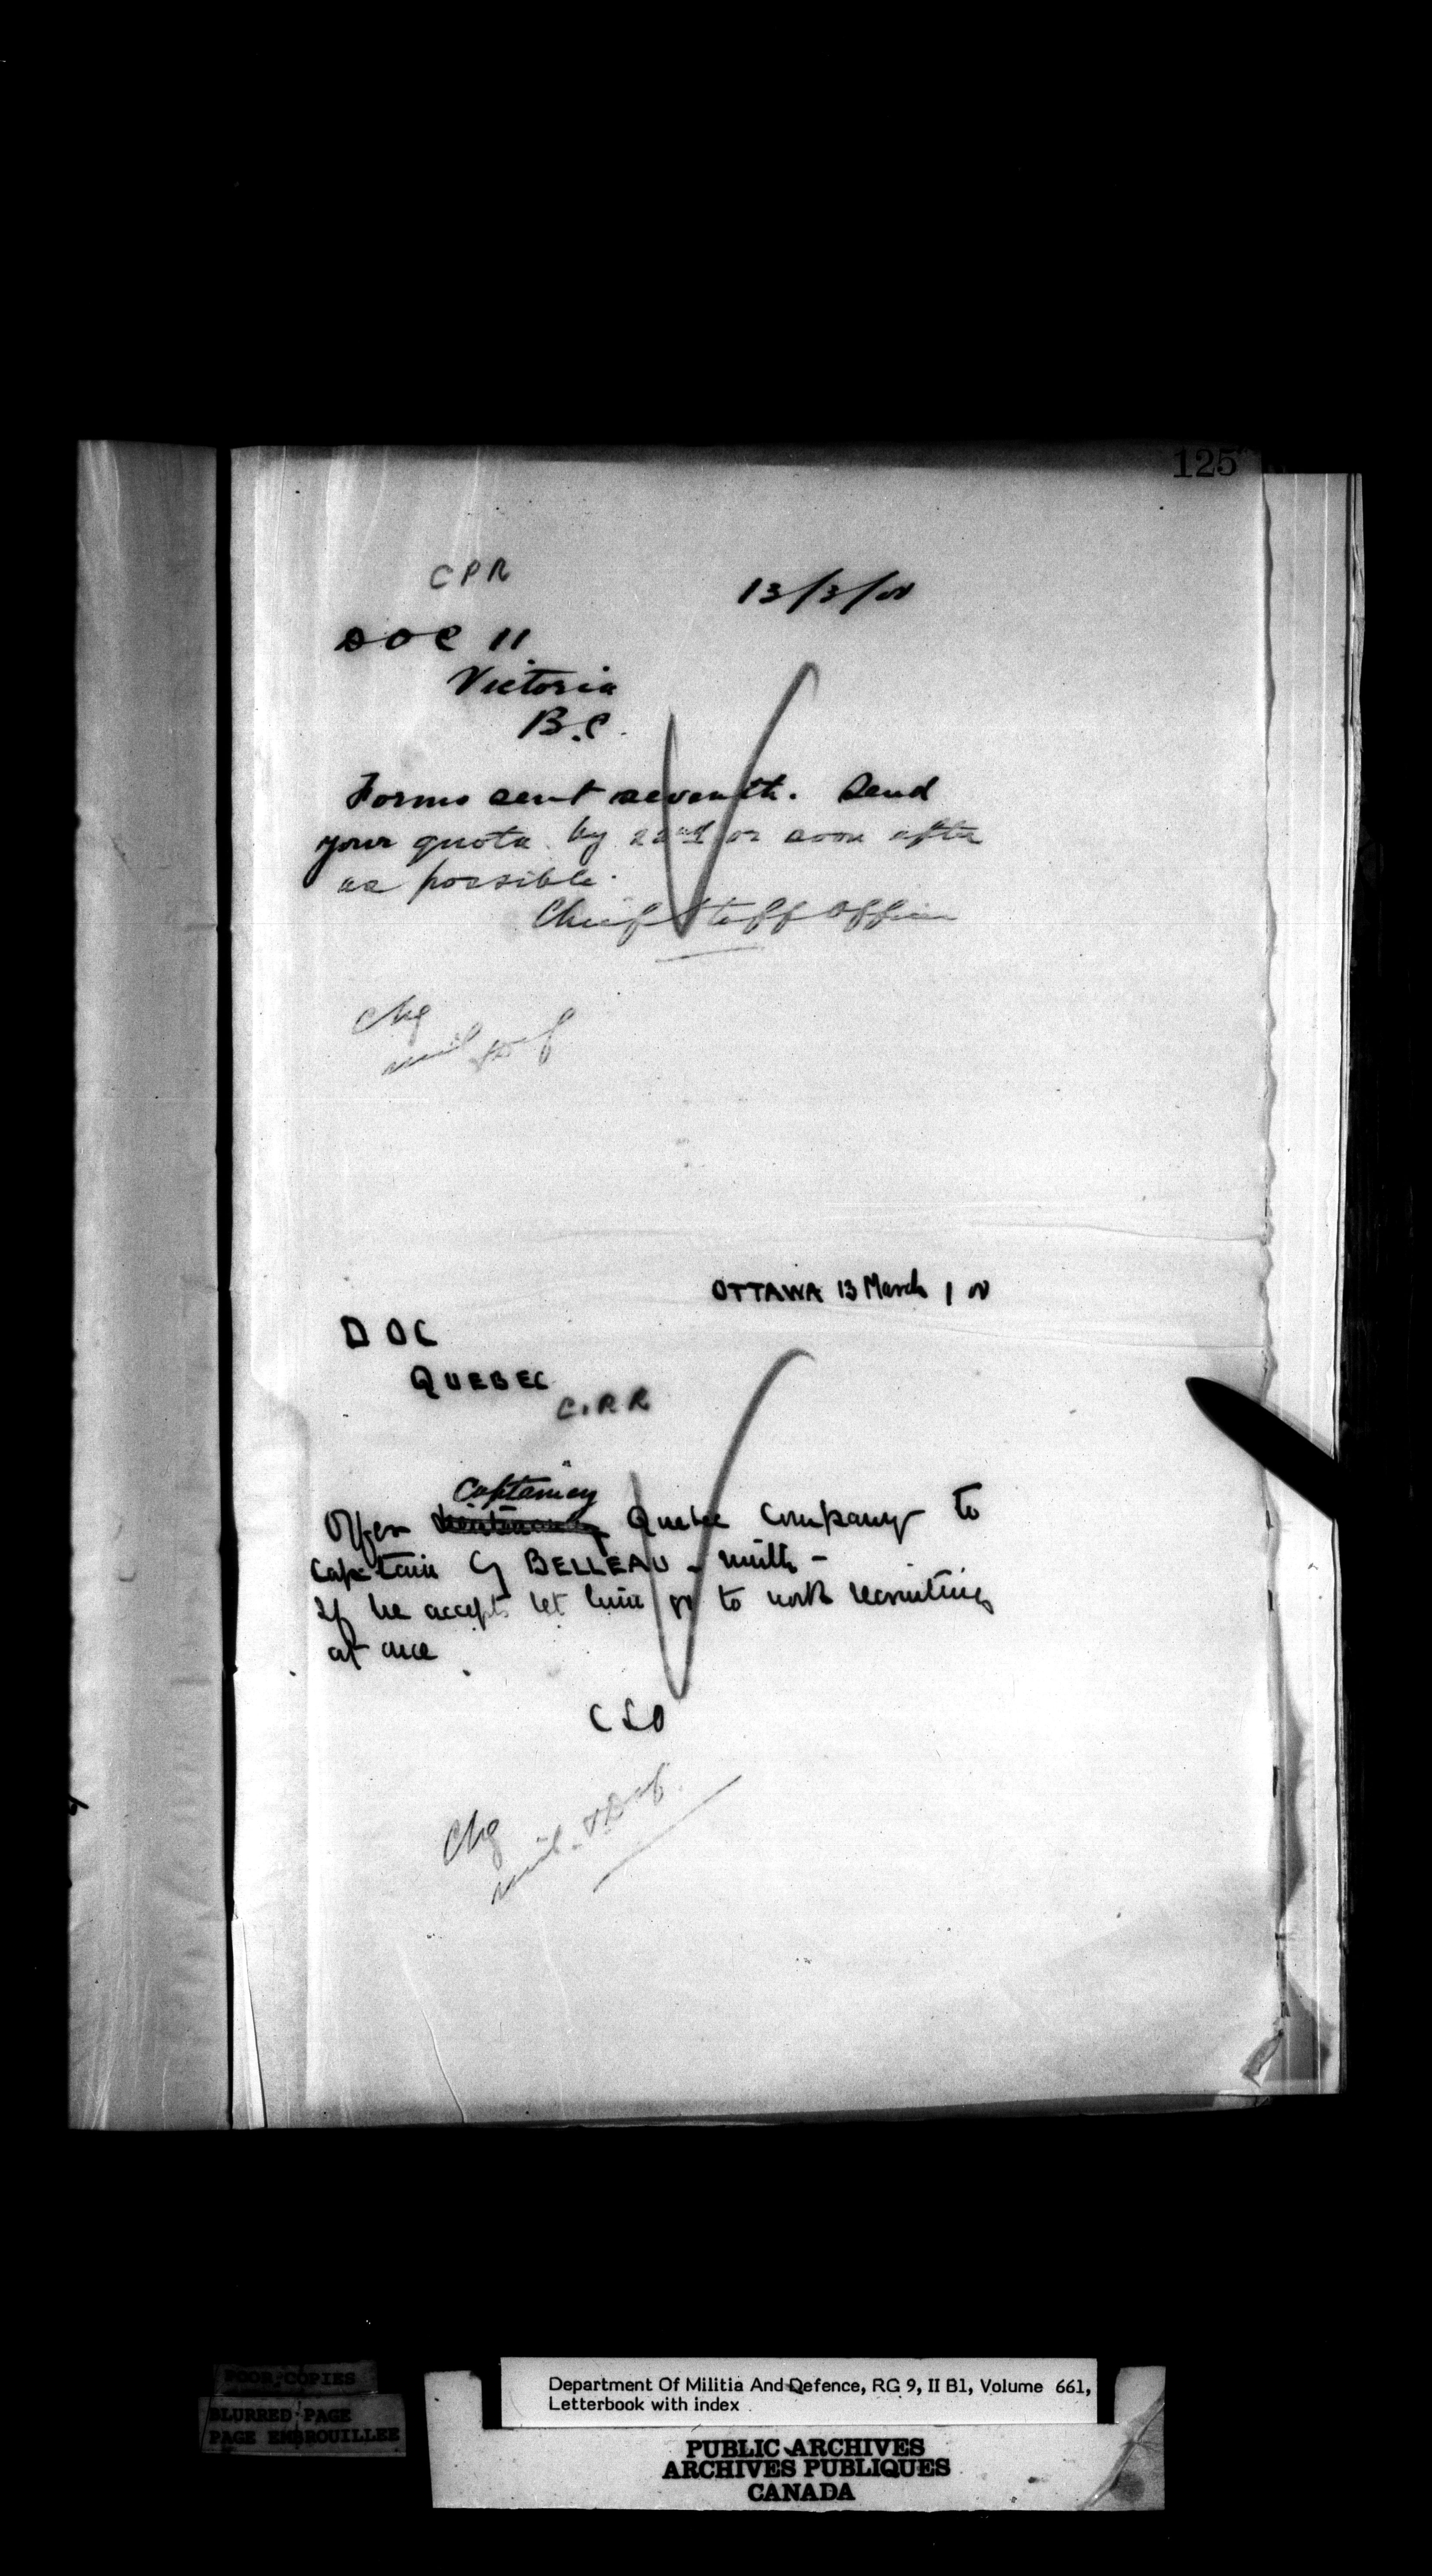 125
CPR
13/3/00
DOC 11
Victoria
B.C.
Forms sent seventh. Send
your quota by 22nd or soon after
as possible.
Chief Staff Officer
Chg
mil & Def
OTTAWA 13 March 1 00
D O C
QUEBEC
C.P.R
Captaincy
Offer Quebec Company to
Captain BELLEAU - ninth -
If he accepts let him go to work recruiting
at once
CSO
Chg
mil. & Def.
POOR COPIES
BLURRED PAGE
PAGE EMBROUILLEE
Department Of Militia And Defence, RG 9, II B1, Volume 661,
Letterbook with index
PUBLIC ARCHIVES
ARCHIVES PUBLIQUES
CANADA